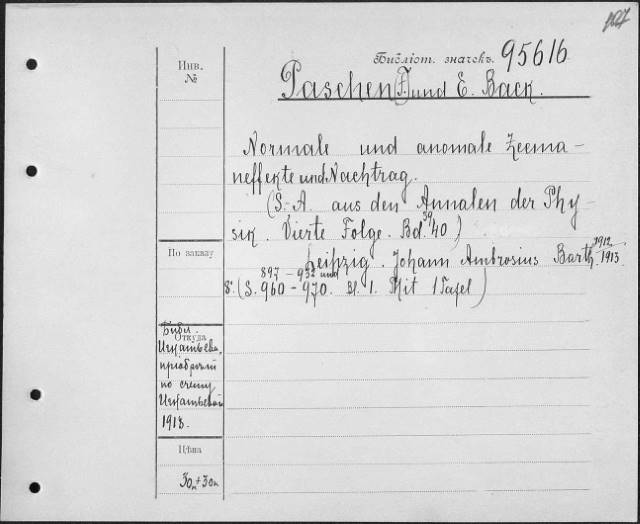 107
Инв.
№
Библіот. значекъ 95616
Paschen (F.) und E. Back.
Normale und anomale Zeema-
neffekte und Nachtrag.
(S. A. aus den Annalen der Phy-
sik. Vierte Folge. Bd. 39, 40)
По заказу
Leipzig. Johann Ambrosius Barth 1912-1913
897 - 932 und
8°. (S. 960 - 970. Bl. 1. Mit 1 Tafel)
Откуда
Библ.
Игнатьева,
по счету
1913.
Цѣна
30к+30к